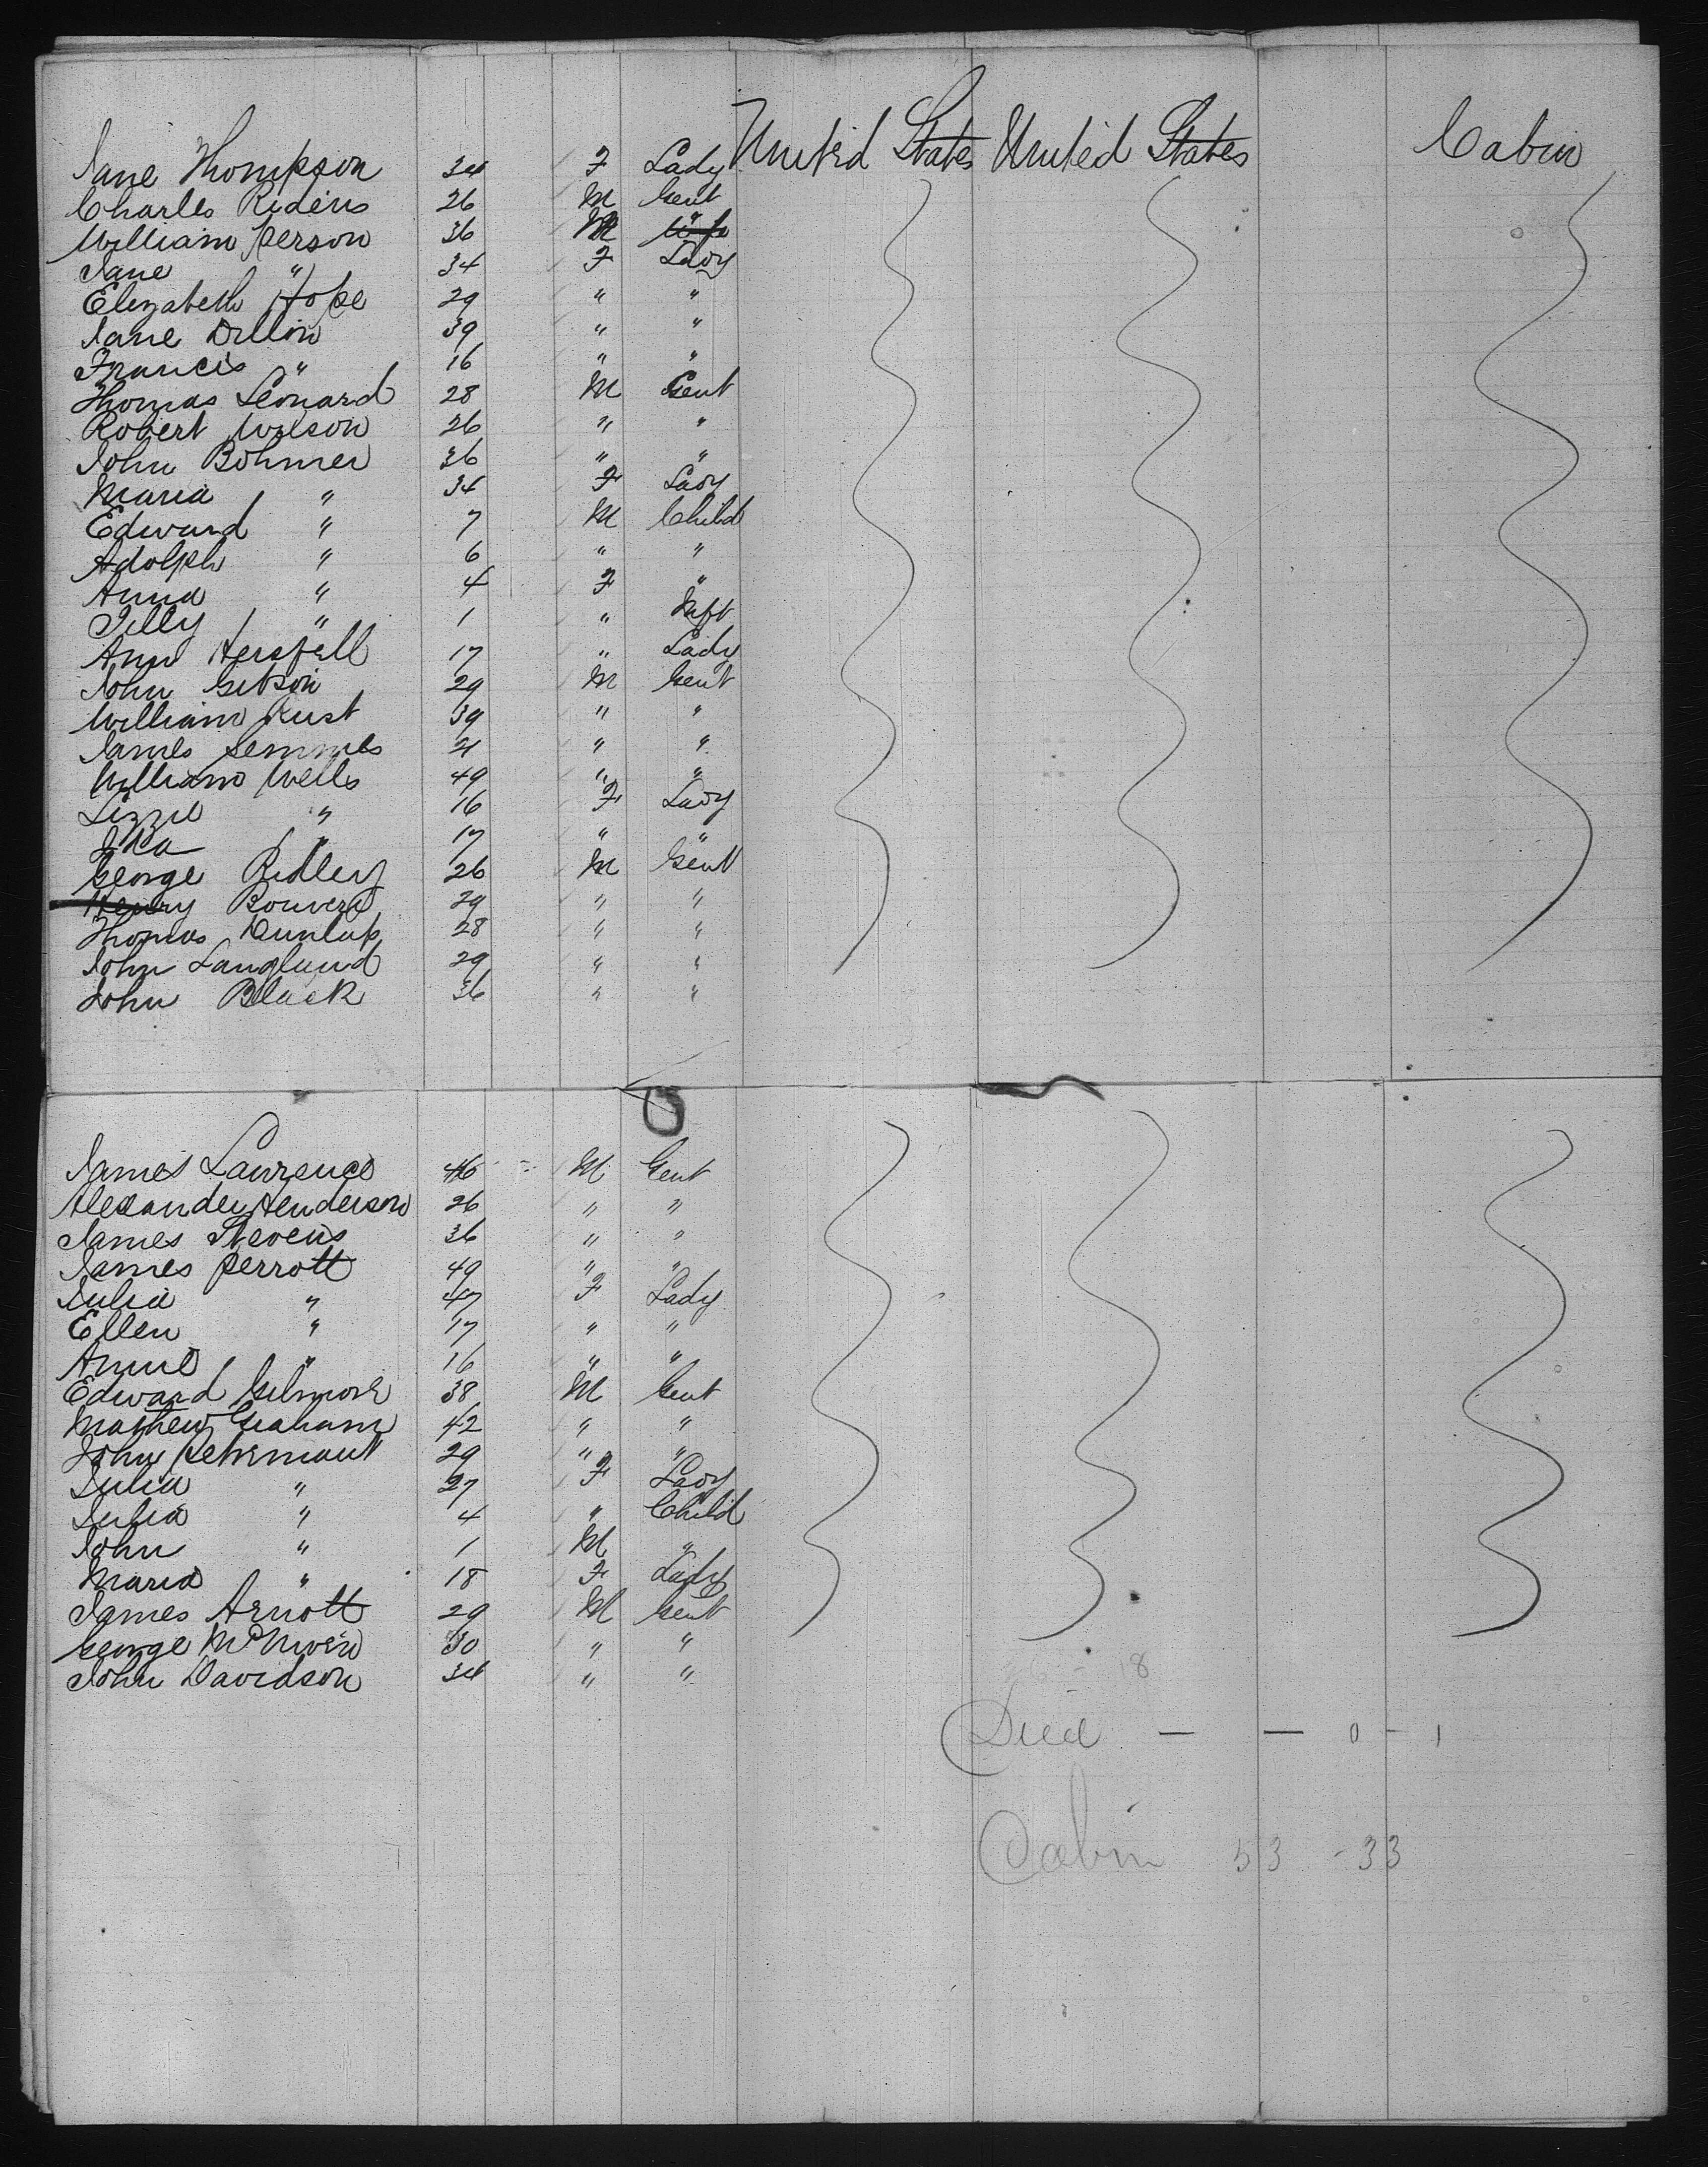 Jane Thompson 34 F Lady United States United States Cabin
Charles Ridens 26 M Gent
William Person 36 M "
Jane " 34 F Lady
Elizabeth Hope 29 " "
Jane Dillon 39 " "
Francis " 16 " "
Thomas Leonard 28 M Gent
Robert Wilson 26 " "
John Bohmer 36 " "
Maria " 34 F Lady
Edward " 7 M Child
Adolph " 6 " "
Anna " 4 F "
Tilly " 1 " Inft
Ann 17 " Lady
John Gibson 29 M Gent
William Rust 39 " "
James Semmes 21 " "
William Wells 49 " "
Lizzie " 16 F Lady
Ida " 17 " "
George Ridley 26 M Gent
Henry 29 " "
Thomas Dunlap 28 " "
John Langland 29 " "
John Black 36 " "
James Lawrence 46 M Gent
Alexander Henderson 26 " "
James Stevens 36 " "
James Perrott 49 " "
Julia " 47 F Lady
Ellen " 17 " "
Annie " 16 " "
Edward Gilmore 38 M Gent
Mathew Graham 42 " "
John 29 " "
Julia " 27 F Lady
Julia " 4 " Child
John " 1 M "
Maria " 18 F Lady
James Arnott 29 M Gent
George McNiven 30 " "
John Davidson 34 " "
18
Died — — 0 - 1
Cabin 53 - 33